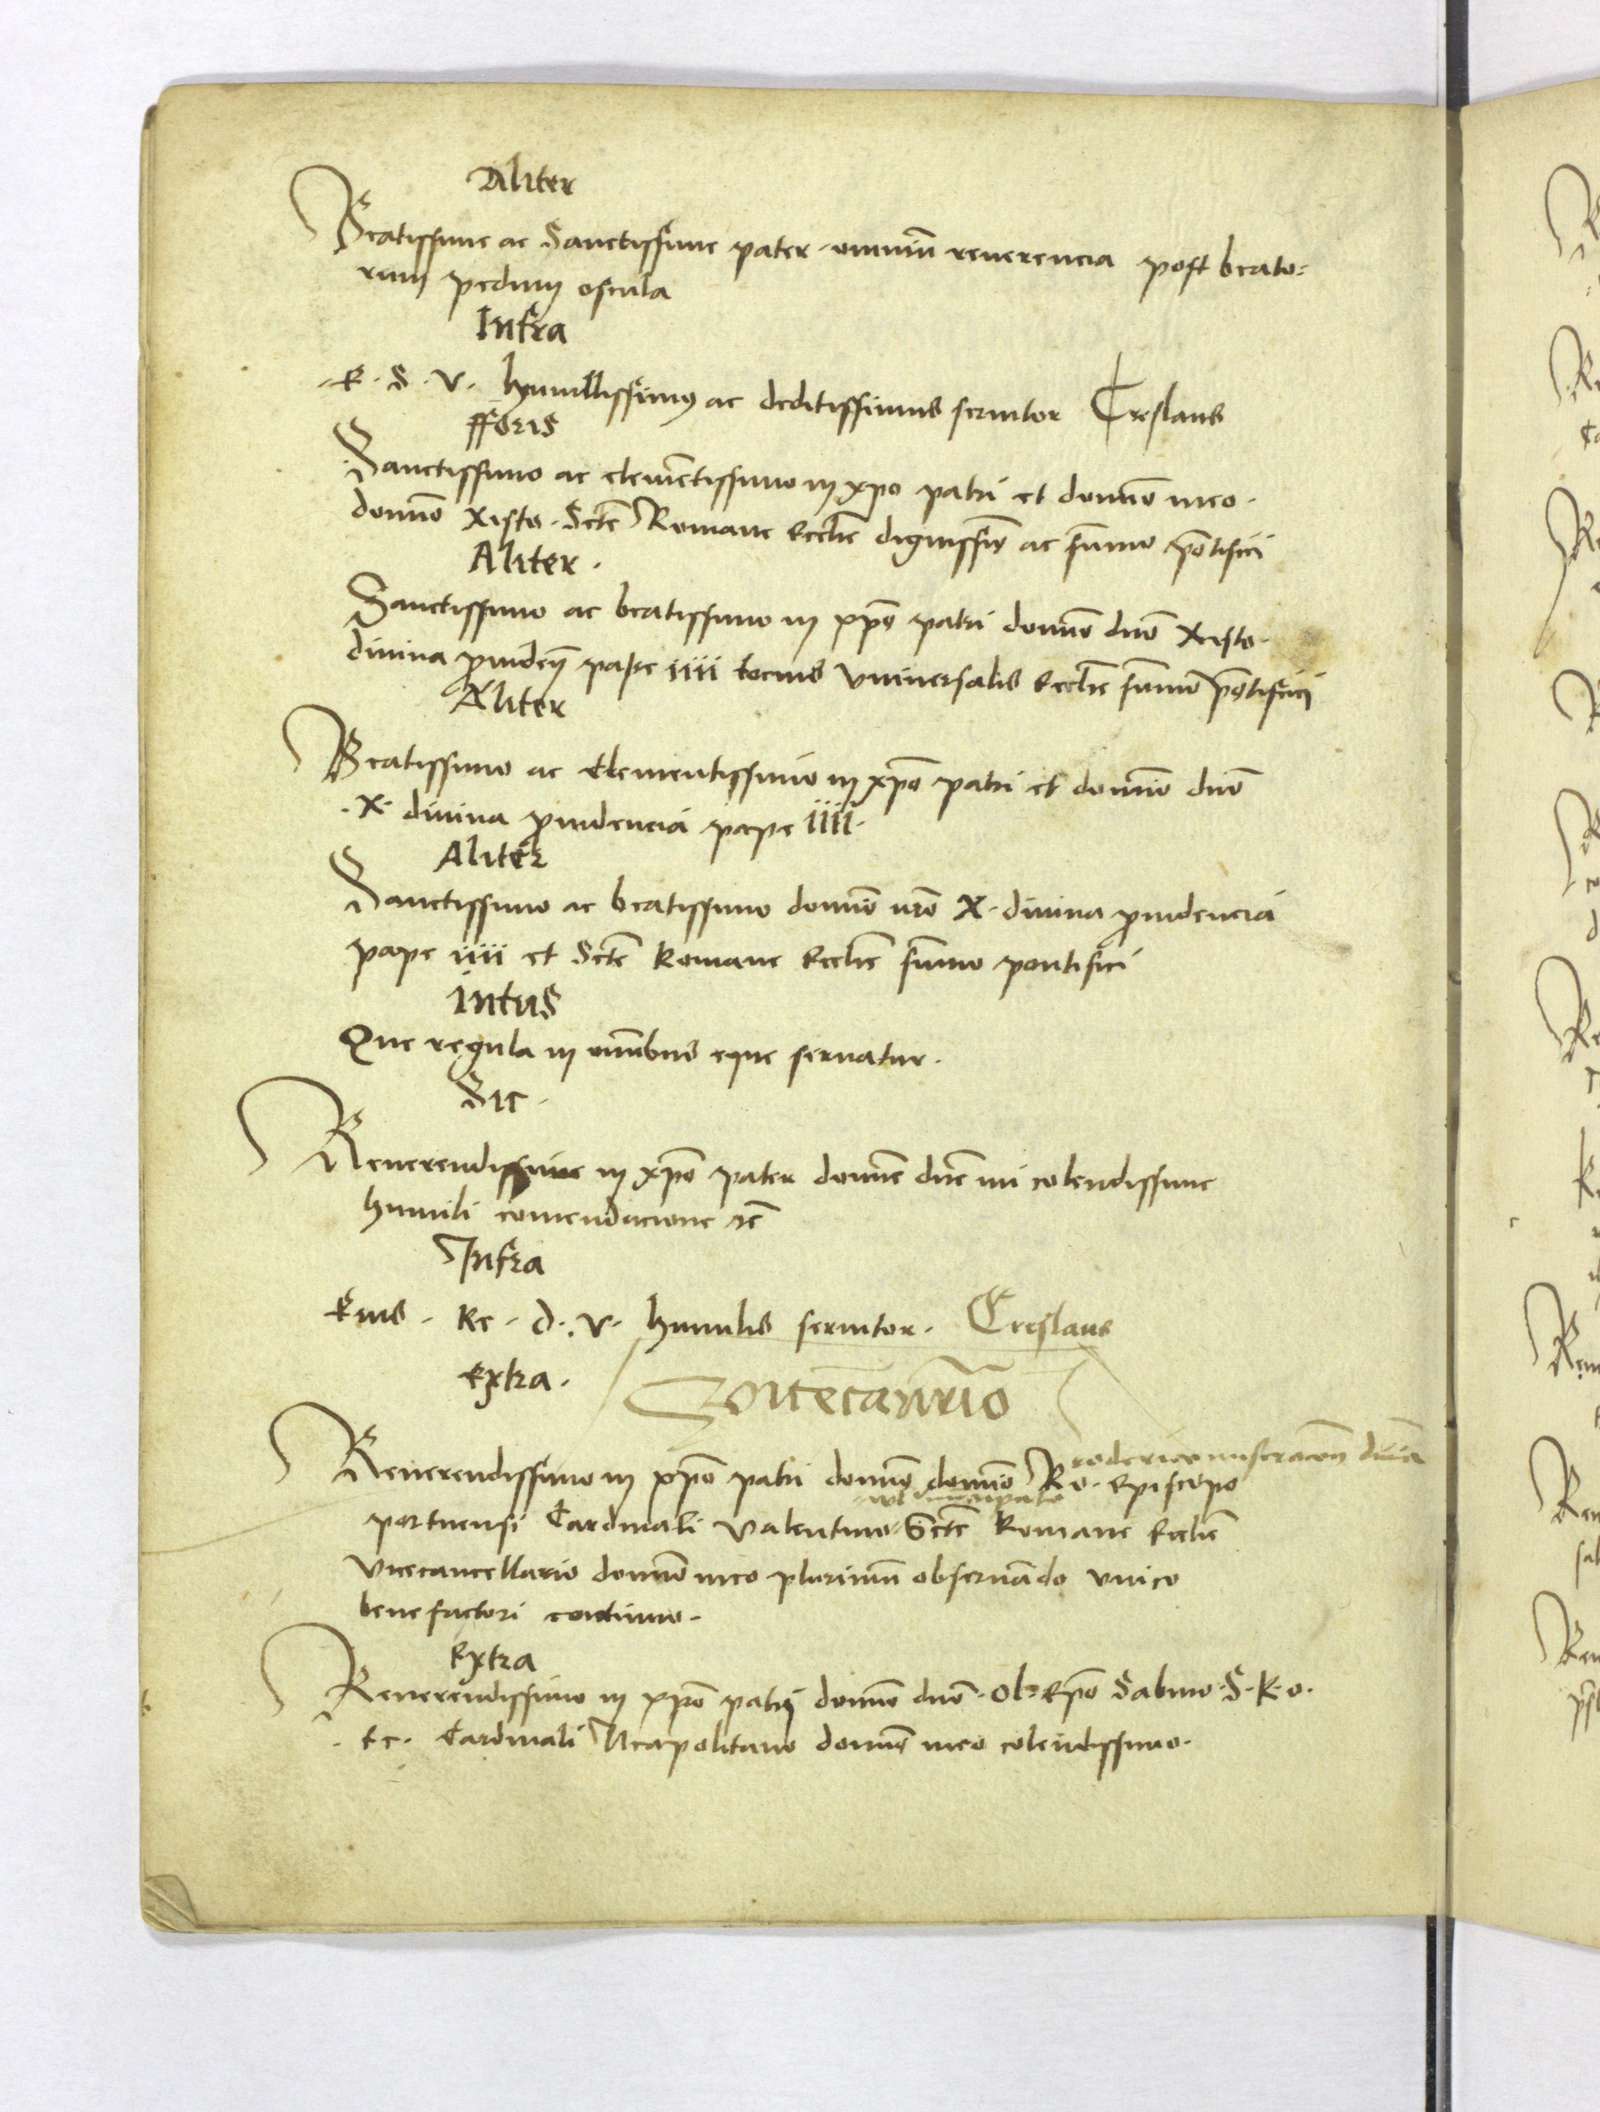 Aliter
Beatissime ac Sanctissime pater omniũ reuerencia post beato=
rum pedum oscula
Infra
E. S. V. humillissimus ac deditissimus seruitor Creslaus
fforis
Sanctissimo ac clemẽtissimo in xpo patri et domĩo meo.
domĩo Xisto. Sctẽ Romane Ecclie dignissĩo ac sũmo põtifici
Aliter.
Sanctissimo ac beatissimo in xpõ patri domĩo dnõ Xisto.
diuina prouideñ pape iiii tocius vniuersalis Ecclie sũmo põtifici
Aliter
Beatissimo ac Clementissimo in xpõ patri et domĩo dnõ
.X. diuina prouidencia pape iiii.
Aliter
Sanctissimo ac beatissimo domĩo nrõ X. diuina prouidencia
pape iiii et Sctẽ Romane Ecclie sũmo pontifici
intus
Que regula in omĩbus eque seruatur.
Sic.
Reuerendissime in xpõ pater domĩe dnẽ mi colendissime
humili comendacione
Infra
Eius. Re. d. v. humilis seruitor. Creslaus
extra.
Reuerendissimo in xpõ patri domĩo domĩo Ro. Episcopo
roderico
portuensi Cardinali Valentino Sctẽ Romane Ecclie
vicecancellario domĩo meo plurimũ obseruãdo vnico
benefactori continuo.
Extra
Reuerendissimo in xpõ patri domĩo dnõ. Ol. Epõ Sabino. S. R. o.
. Ec. Cardinali Neapolitano domĩo meo colendissimo.